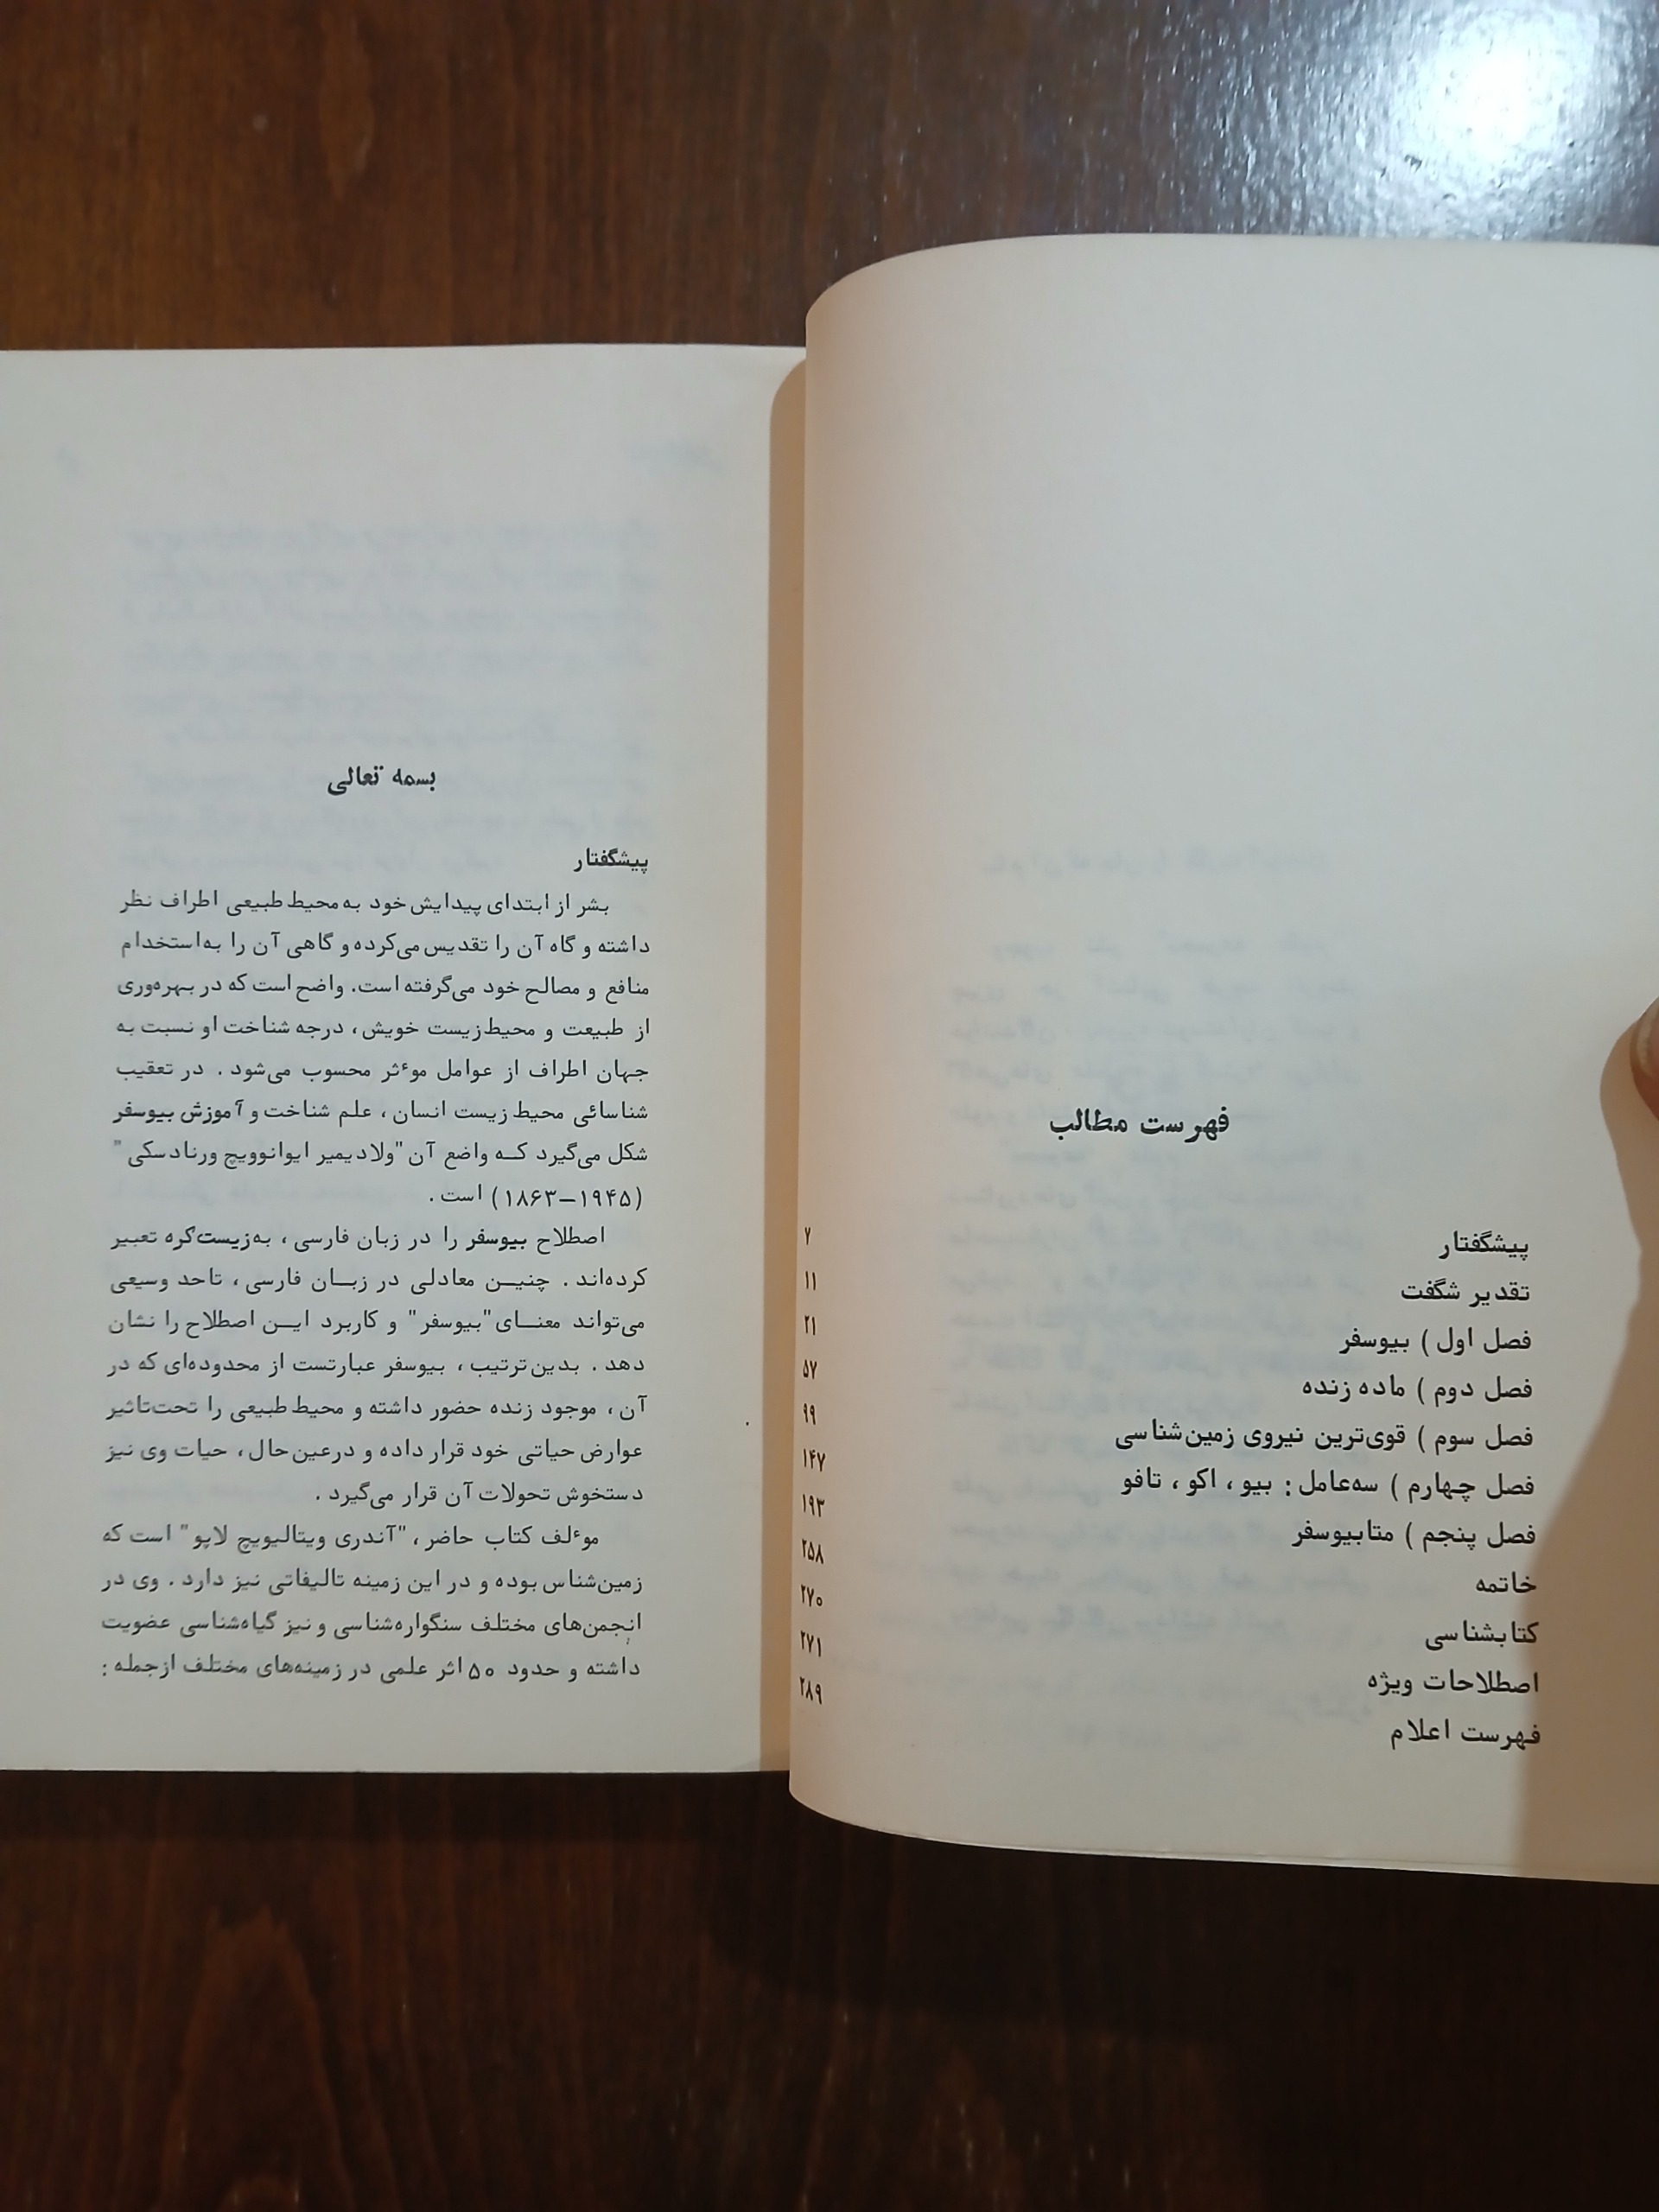 فهرست مطالب
پیشگفتار ۷
تقدیر شگفت ۱۱
فصل اول ) بیوسفر ۲۱
فصل دوم ) ماده زنده ۵۷
فصل سوم ) قوی‌ترین نیروی زمین‌شناسی ۹۹
فصل چهارم ) سه‌عامل : بیو ، اکو ، تافو ۱۴۷
فصل پنجم ) متابیوسفر ۱۹۳
خاتمه ۲۵۸
کتابشناسی ۲۷۰
اصطلاحات ویژه ۲۷۱
فهرست اعلام ۲۸۹
بسمه تعالی
پیشگفتار
بشر از ابتدای پیدایش خود به‌محیط طبیعی اطراف نظر
داشته و گاه آن را تقدیس می‌کرده و گاهی آن را به‌استخدام
منافع و مصالح خود می‌گرفته است. واضح است که در بهره‌وری
از طبیعت و محیط‌زیست خویش ، درجه شناخت او نسبت به
جهان اطراف از عوامل موٴثر محسوب می‌شود . در تعقیب
شناسائی محیط زیست انسان ، علم شناخت و آموزش بیوسفر
شکل می‌گیرد کـه واضع آن "ولادیمیر ایوانوویچ ورنادسکی"
(۱۸۶۳–۱۹۴۵) است .
اصطلاح بیوسفر را در زبان فارسی ، به‌زیست‌کره تعبیر
کرده‌اند . چنیـن معادلی در زبـان فارسی ، تاحد وسیعی
می‌تواند معنـای "بیوسفر" و کاربرد ایـن اصطلاح را نشان
دهد . بدین‌ترتیب ، بیوسفر عبارتست از محدوده‌ای که در
آن ، موجود زنده حضور داشته و محیط طبیعی را تحت‌تاثیر
عوارض حیاتی خود قرار داده و درعین‌حال ، حیات وی نیز
دستخوش تحولات آن قرار می‌گیرد .
موٴلف کتاب حاضر ، "آندری ویتالیویچ لاپو" است که
زمین‌شناس بوده و در این زمینه تالیفاتی نیز دارد . وی در
انجمن‌های مختلف سنگواره‌شناسی و نیز گیاه‌شناسی عضویت
داشته و حدود ۵۰ اثر علمی در زمینه‌های مختلف ازجمله :